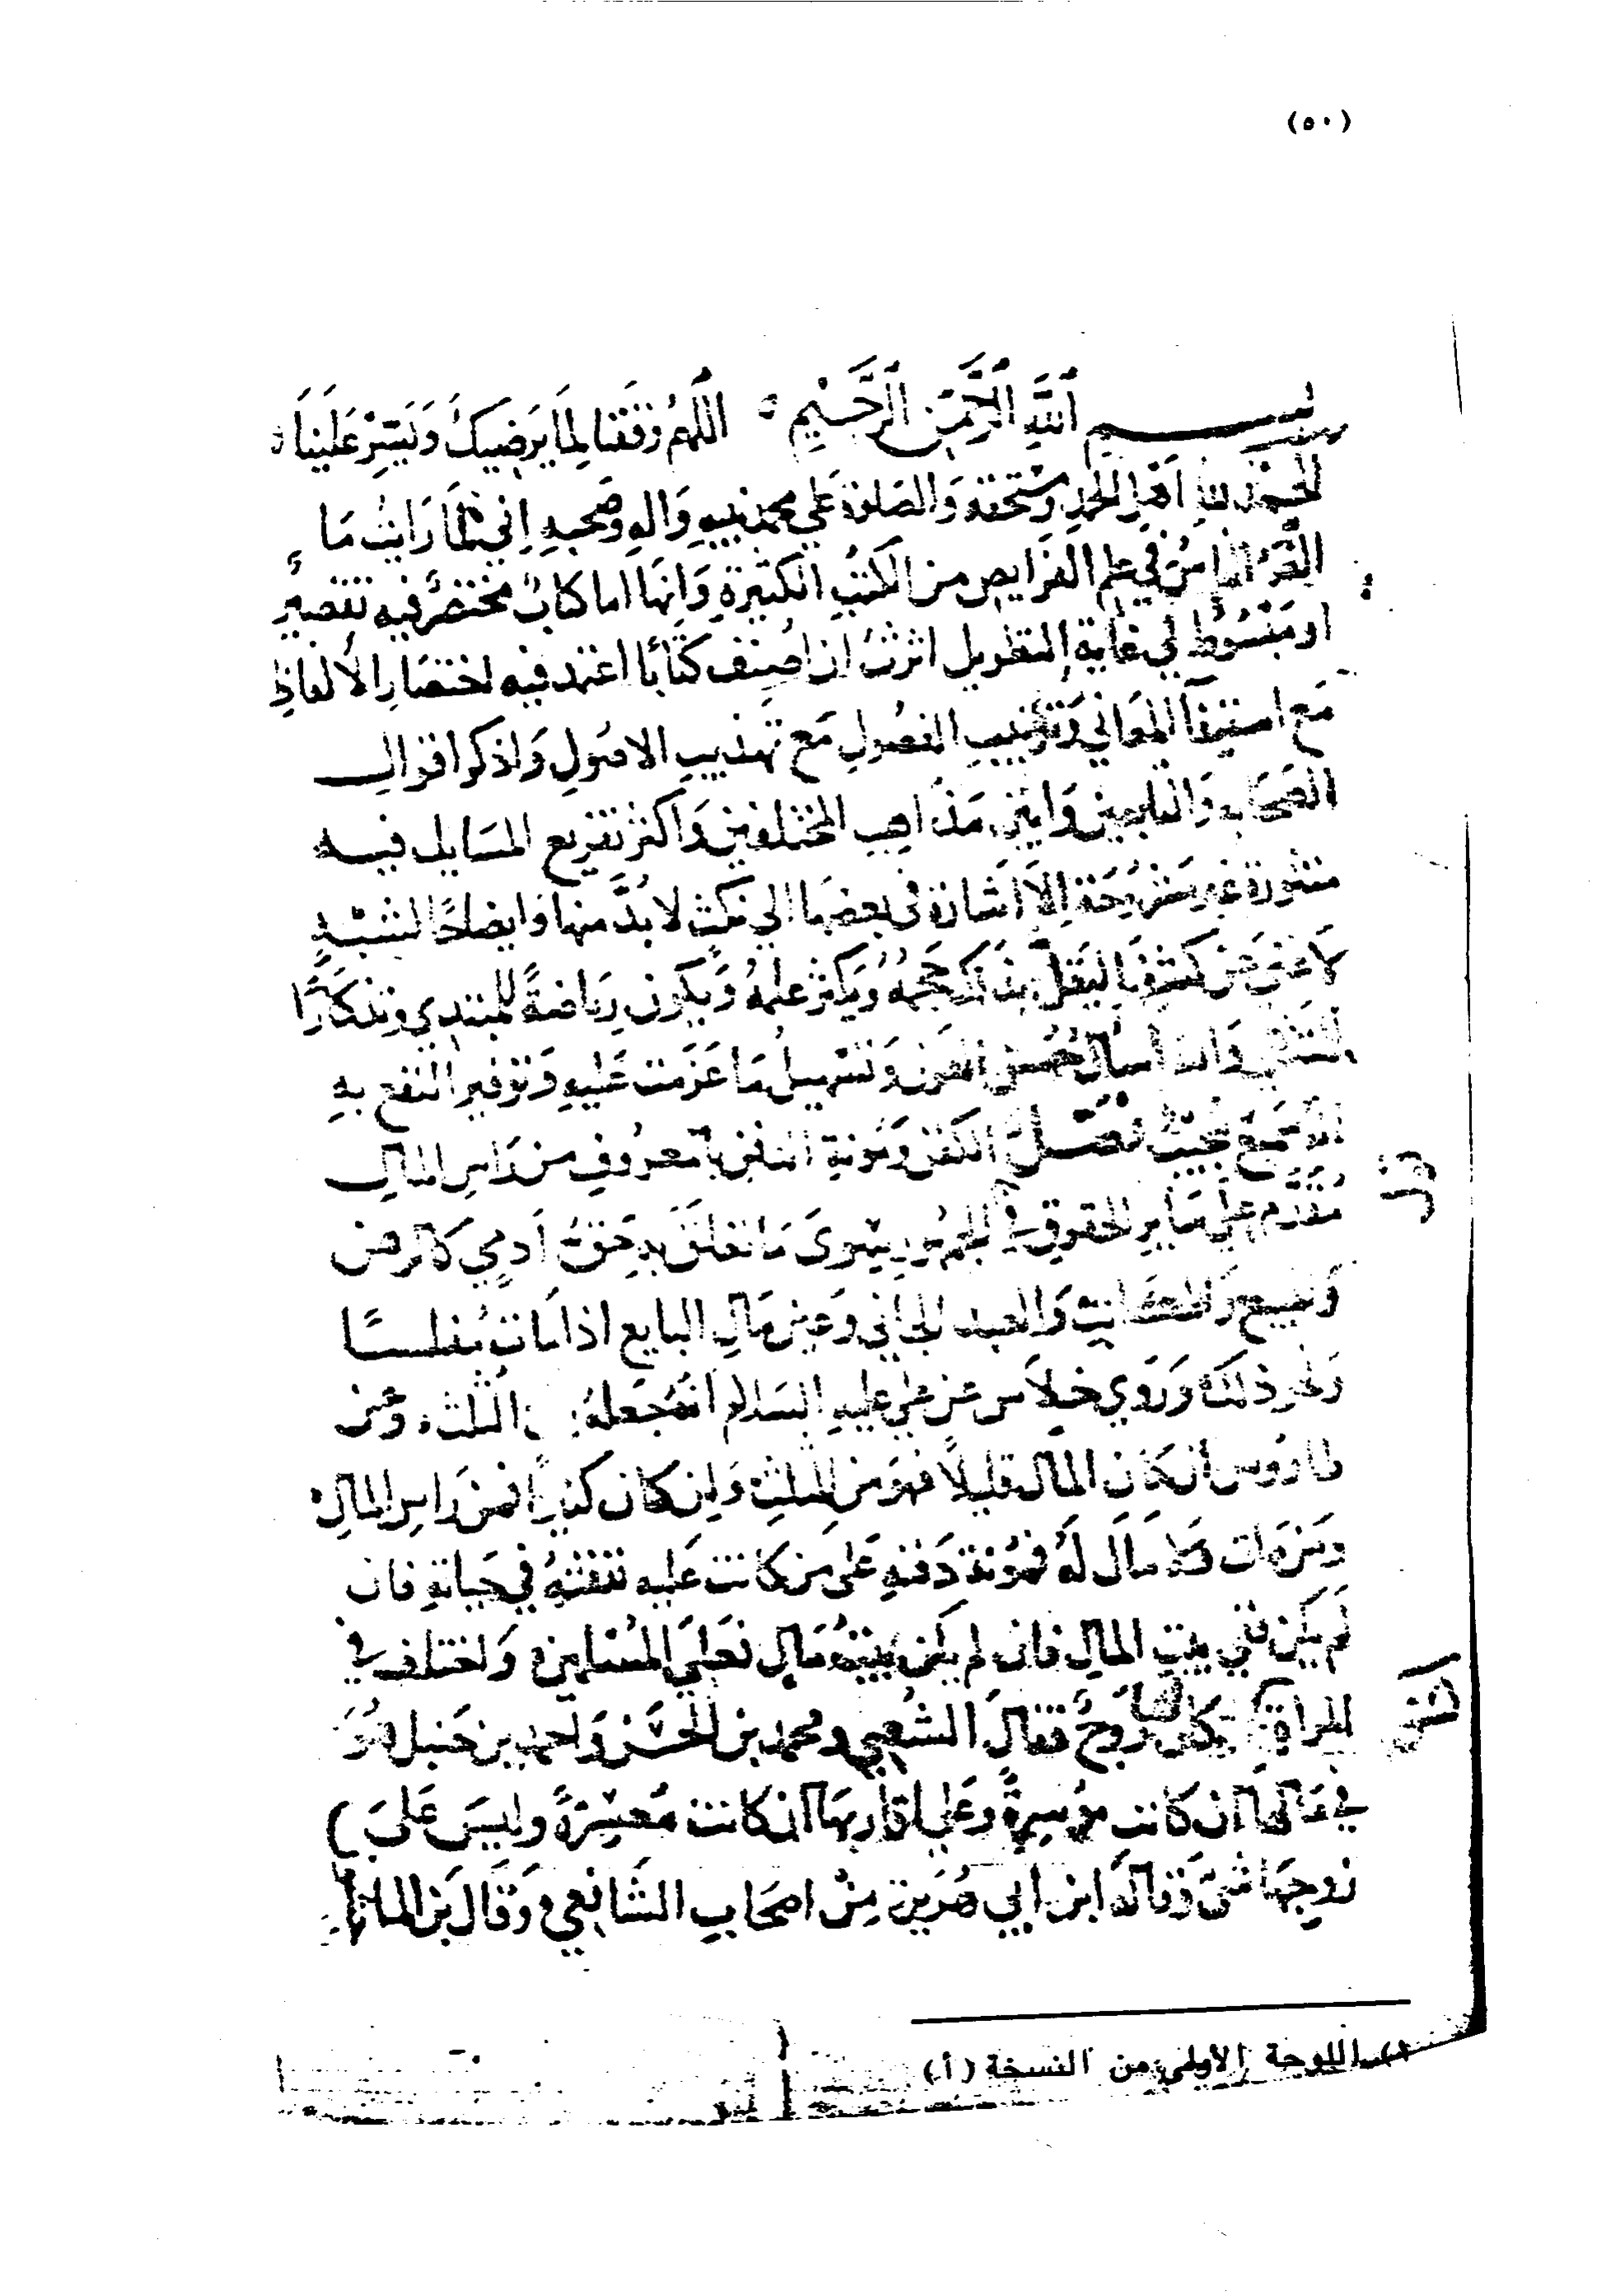 (٥٠)
بسم الله الرحمن الرحيم اللهم وفقنا لما يرضيك ويسر علينا
الحمد لله اهل الحمد ومستحقه والصلوة على محمد نبيه واله وصحبه اني لما رايت ما
الناس في علم الفرايض من الكتب الكثيرة وانها اما كتاب مختصر فيه تقصير
او مبسوط في غاية التطويل اثرت ان اصنف كتابا اعتمد فيه اختصار الالفاظ
مع استيفآ المعاني وترتيب الفصول مع تهذيب الاصول واذكر اقوال
الصحابه والتابعين وابين مذاهب المختلفين واكثر تفريع المسايل فيه
منثورة غير مشروحة الا اشارة في بعضها الى نكت لا بد منها وايضاحا
لا غنى عن كشفها ليقل بذلك حجمه ويكثر علمه ويكون رياضة للمبتدي وتذكارا
للمنتهي والله اسال حسن العون وتسهيل ما عزمت عليه وتوفير النفع به
انه سميع مجيب فصل الكفن ومونة الدفن بالمعروف من راس المال
مقدم على ساير الحقوق في الجمهور سوى ما تعلق به حق ادمي كالرهن
والمبيع والعبد الجاني وعين مال البايع اذا مات مفلسا
ونحو ذلك وروي خلاس عن علي عليه السلام انه جعله من الثلث وعن
طاووس ان كان المال قليلا فهو من الثلث وان كان كثيرا فمن راس المال
ومن مات ولا مال له فمونة دفنه على من كانت عليه نفقته في حياته فان
لم يكن ففي بيت المال فان لم يكن بيت مال فعلى المسلمين واختلف في
المراة يكون لها زوج فقال الشعبي ومحمد بن الحسن واحمد بن حنبل هو
في مالها ان كانت موسرة وعلى اقاربها ان كانت معسرة وليس على
زوجها شي وقاله ابن ابي هريرة من اصحاب الشافعي وقال
(١) اللوحة الأولى من النسخة (أ)